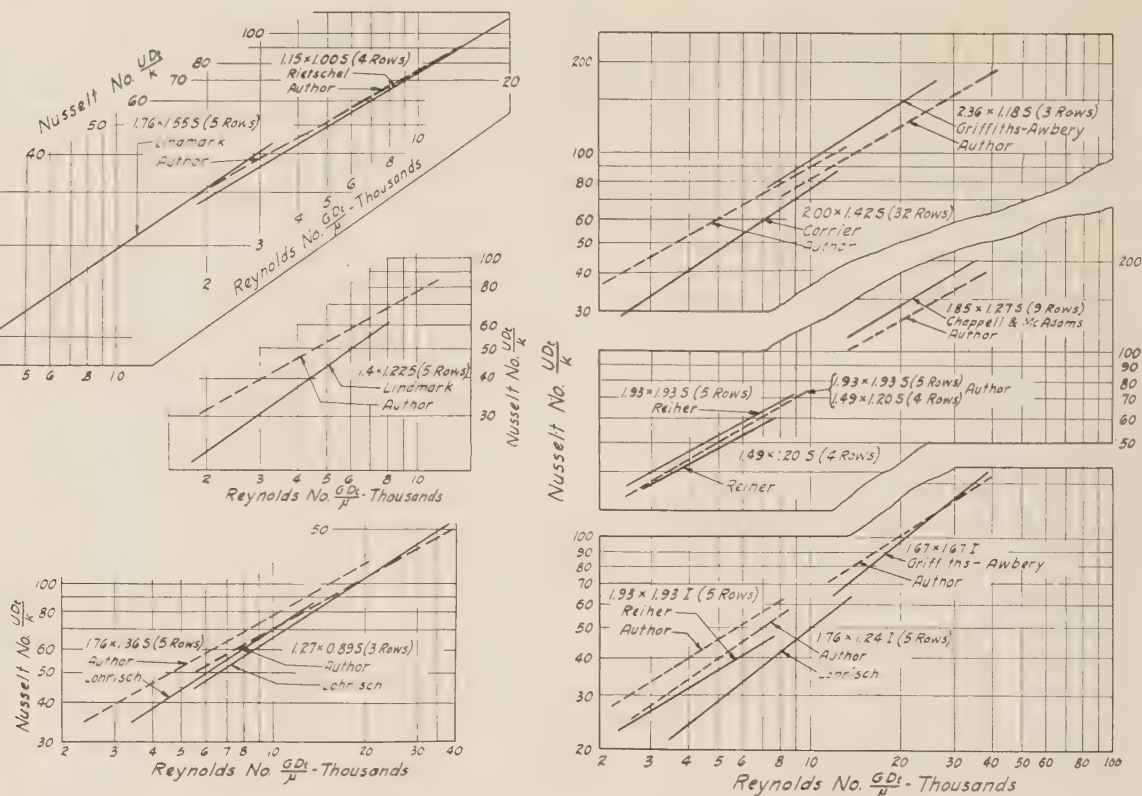 100
80
70
60
50
40
Nusselt No. UDt/k
1.15×1.00 S (4 Rows)
Rietschel
Author
1.76×1.55 S (5 Rows)
Lindmark
Author
20
10
8
6
5
4
3
2
Reynolds No. GDt/μ - Thousands
5 6 8 10
100
80
60
50
40
30
Nusselt No. UDt/k
1.4×1.22 S (5 Rows)
Lindmark
Author
2 3 4 5 6 8 10
Reynolds No. GDt/μ - Thousands
50
100
80
60
50
40
30
Nusselt No. UDt/k
1.76×.36 S (5 Rows)
Author
Lohrisch
1.27×0.89 S (3 Rows)
Author
Lohrisch
2 3 4 5 6 7 8 10 20 30 40
Reynolds No. GDt/μ - Thousands
200
100
80
60
50
40
30
2.36×1.18 S (3 Rows)
Griffiths-Awbery
Author
2.00×1.42 S (32 Rows)
Carrier
Author
Nusselt No. UDt/k
200
100
90
80
70
60
50
40
30
1.85×1.27 S (9 Rows)
Chappell & McAdams
Author
1.93×1.93 S (5 Rows)
Reiher
1.93×1.93 S (5 Rows)
1.49×1.20 S (4 Rows)
Author
1.49×1.20 S (4 Rows)
Reiher
100
90
80
70
60
50
40
30
20
1.67×1.67 I
Griffiths-Awbery
Author
1.93×1.93 I (5 Rows)
Reiher
Author
1.76×1.24 I (5 Rows)
Author
Lohrisch
2 3 4 5 6 8 10 20 30 40 50 60 80 100
Reynolds No. GDt/μ - Thousands